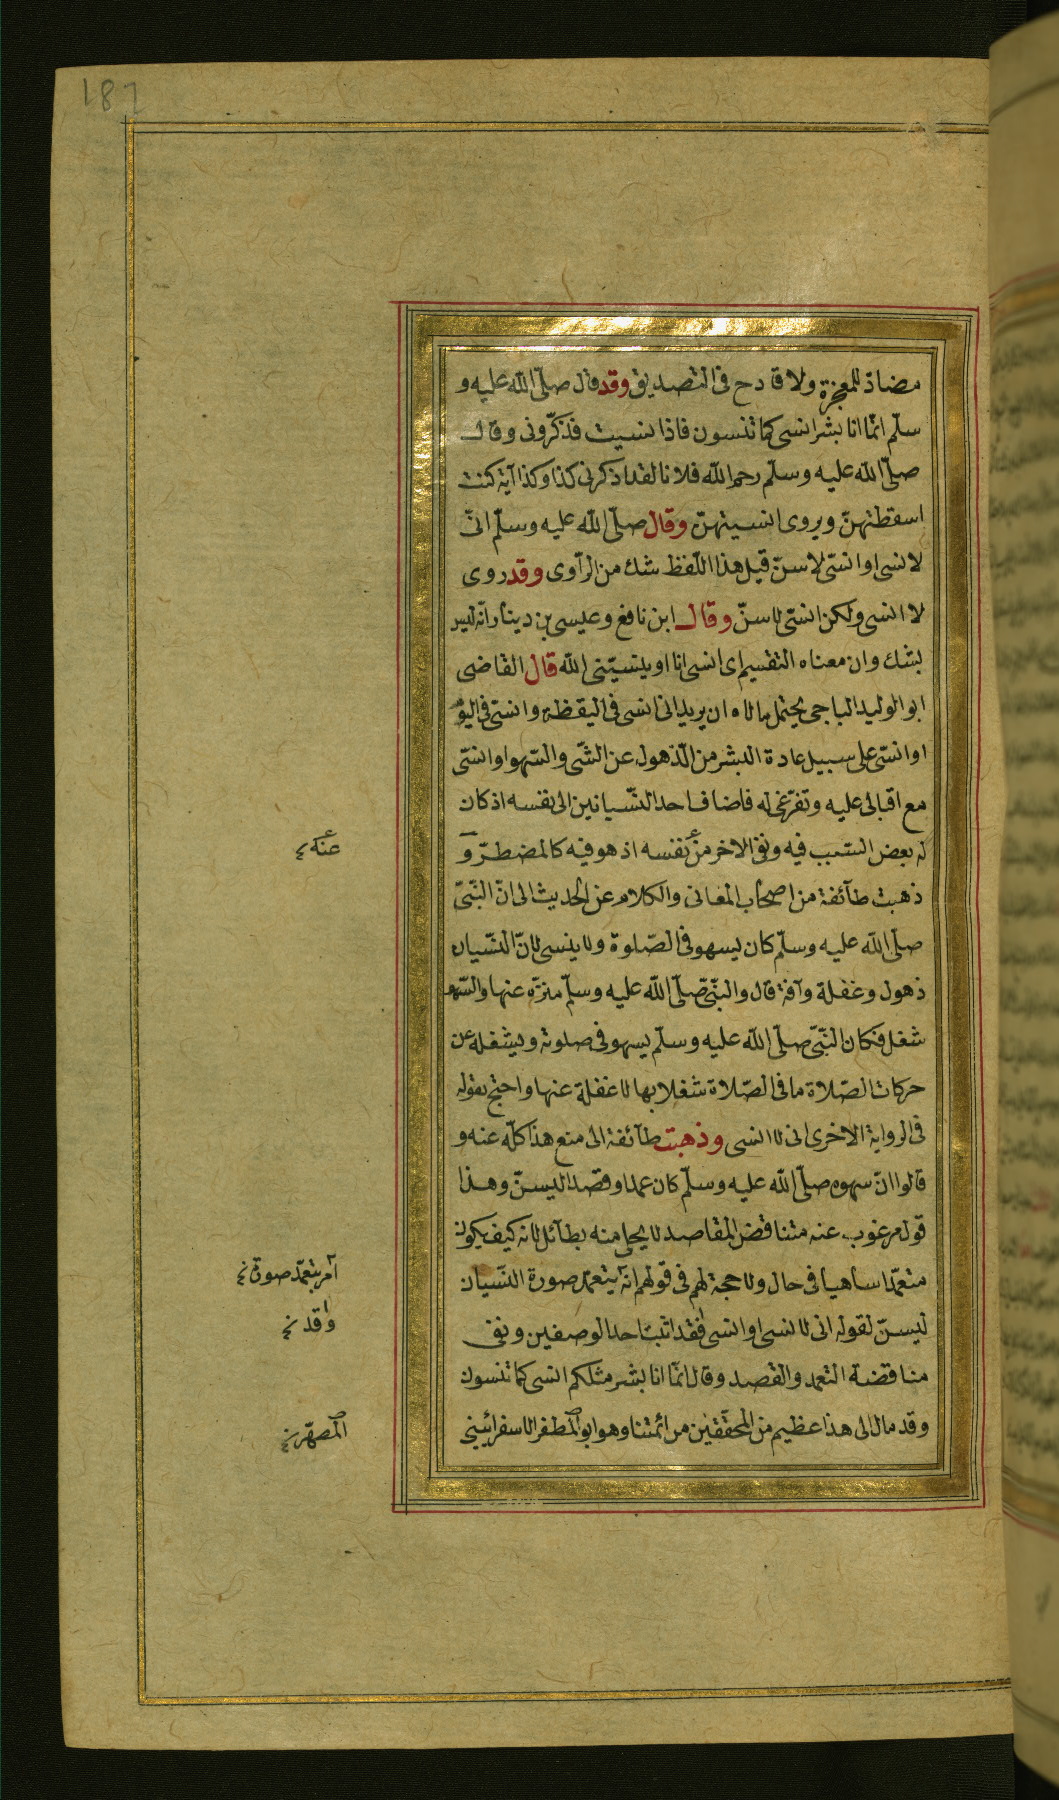 187
مضادّ للمعجزة ولا قادح فى التصديق وقد قال صلّى الله عليه و
سلّم انّما انا بشر انسى كما تنسون فاذا نسيت فذكّرونى وقال
صلّى الله عليه وسلّم رحم الله فلانا لقد اذكرنى كذا وكذا آية كنت
اسقطتهنّ ويروى انسيتهنّ وقال صلّى الله عليه وسلّم انّى
لانسى او انسّى لاسنّ قيل هذا اللّفظ شك من الرّاوى وقد روى
لا انسى ولكن انسّى لاسنّ وقال ابن نافع وعيسى بن دينار انّه ليس
بشك وان معناه التقسيم اى انسى انا او ينسيّنى الله قال القاضى
ابو الوليد الباجى يحتمل ما قالاه ان يريد انى انسى فى اليقظة وانسّى فى النوم
او انسى على سبيل عادة البشر من الذّهول عن الشّى والسّهو او انسّى
مع اقبالى عليه وتفرّغى له فاضاف احد النّسيانين الى نفسه اذ كان
له بعض السّبب فيه ونفى الاخر من نفسه اذ هو فيه كالمضطرّ و
ذهبت طآئفة من اصحاب المعانى والكلام عن الحديث الى انّ النّبىّ
صلّى الله عليه وسلّم كان يسهو فى الصّلوة ولا ينسى لانّ النّسيان
ذهول وغفلة وآفة قال والنّبىّ صلّى الله عليه وسلّم منزّه عنها والسّهو
شغل فكان النّبىّ صلّى الله عليه وسلّم يسهو فى صلوته ويشغله عن
حركات الصّلاة ما فى الصّلاة شغلا بها لا غفلة عنها واحتج بقوله
فى الرواية الاخرى انى لا انسى وذهبت طآئفة الى منع هذا كلّه عنه و
قالوا انّ سهوه صلّى الله عليه وسلّم كان عمدا وقصدا ليسنّ وهذا
قول مرغوب عنه متناقض المقاصد لا يحلى منه بطآئل لانه كيف يكون
متعمّدا ساهيا فى حال ولا حجة لهم فى قولهم انّه يتعمّد صورة النّسيان
ليسنّ لقوله انى لانسى او انسى فقد اثبت احد الوصفين ونفى
مناقضة التعمد والقصد وقال انّما انا بشر مثلكم انسى كما تنسون
وقد مال الى هذا عظيم من المحقّقين من ائمّتنا وهو ابو المظفر الاسفرائينى
عنه
امر بتعمّد صورة
وقد